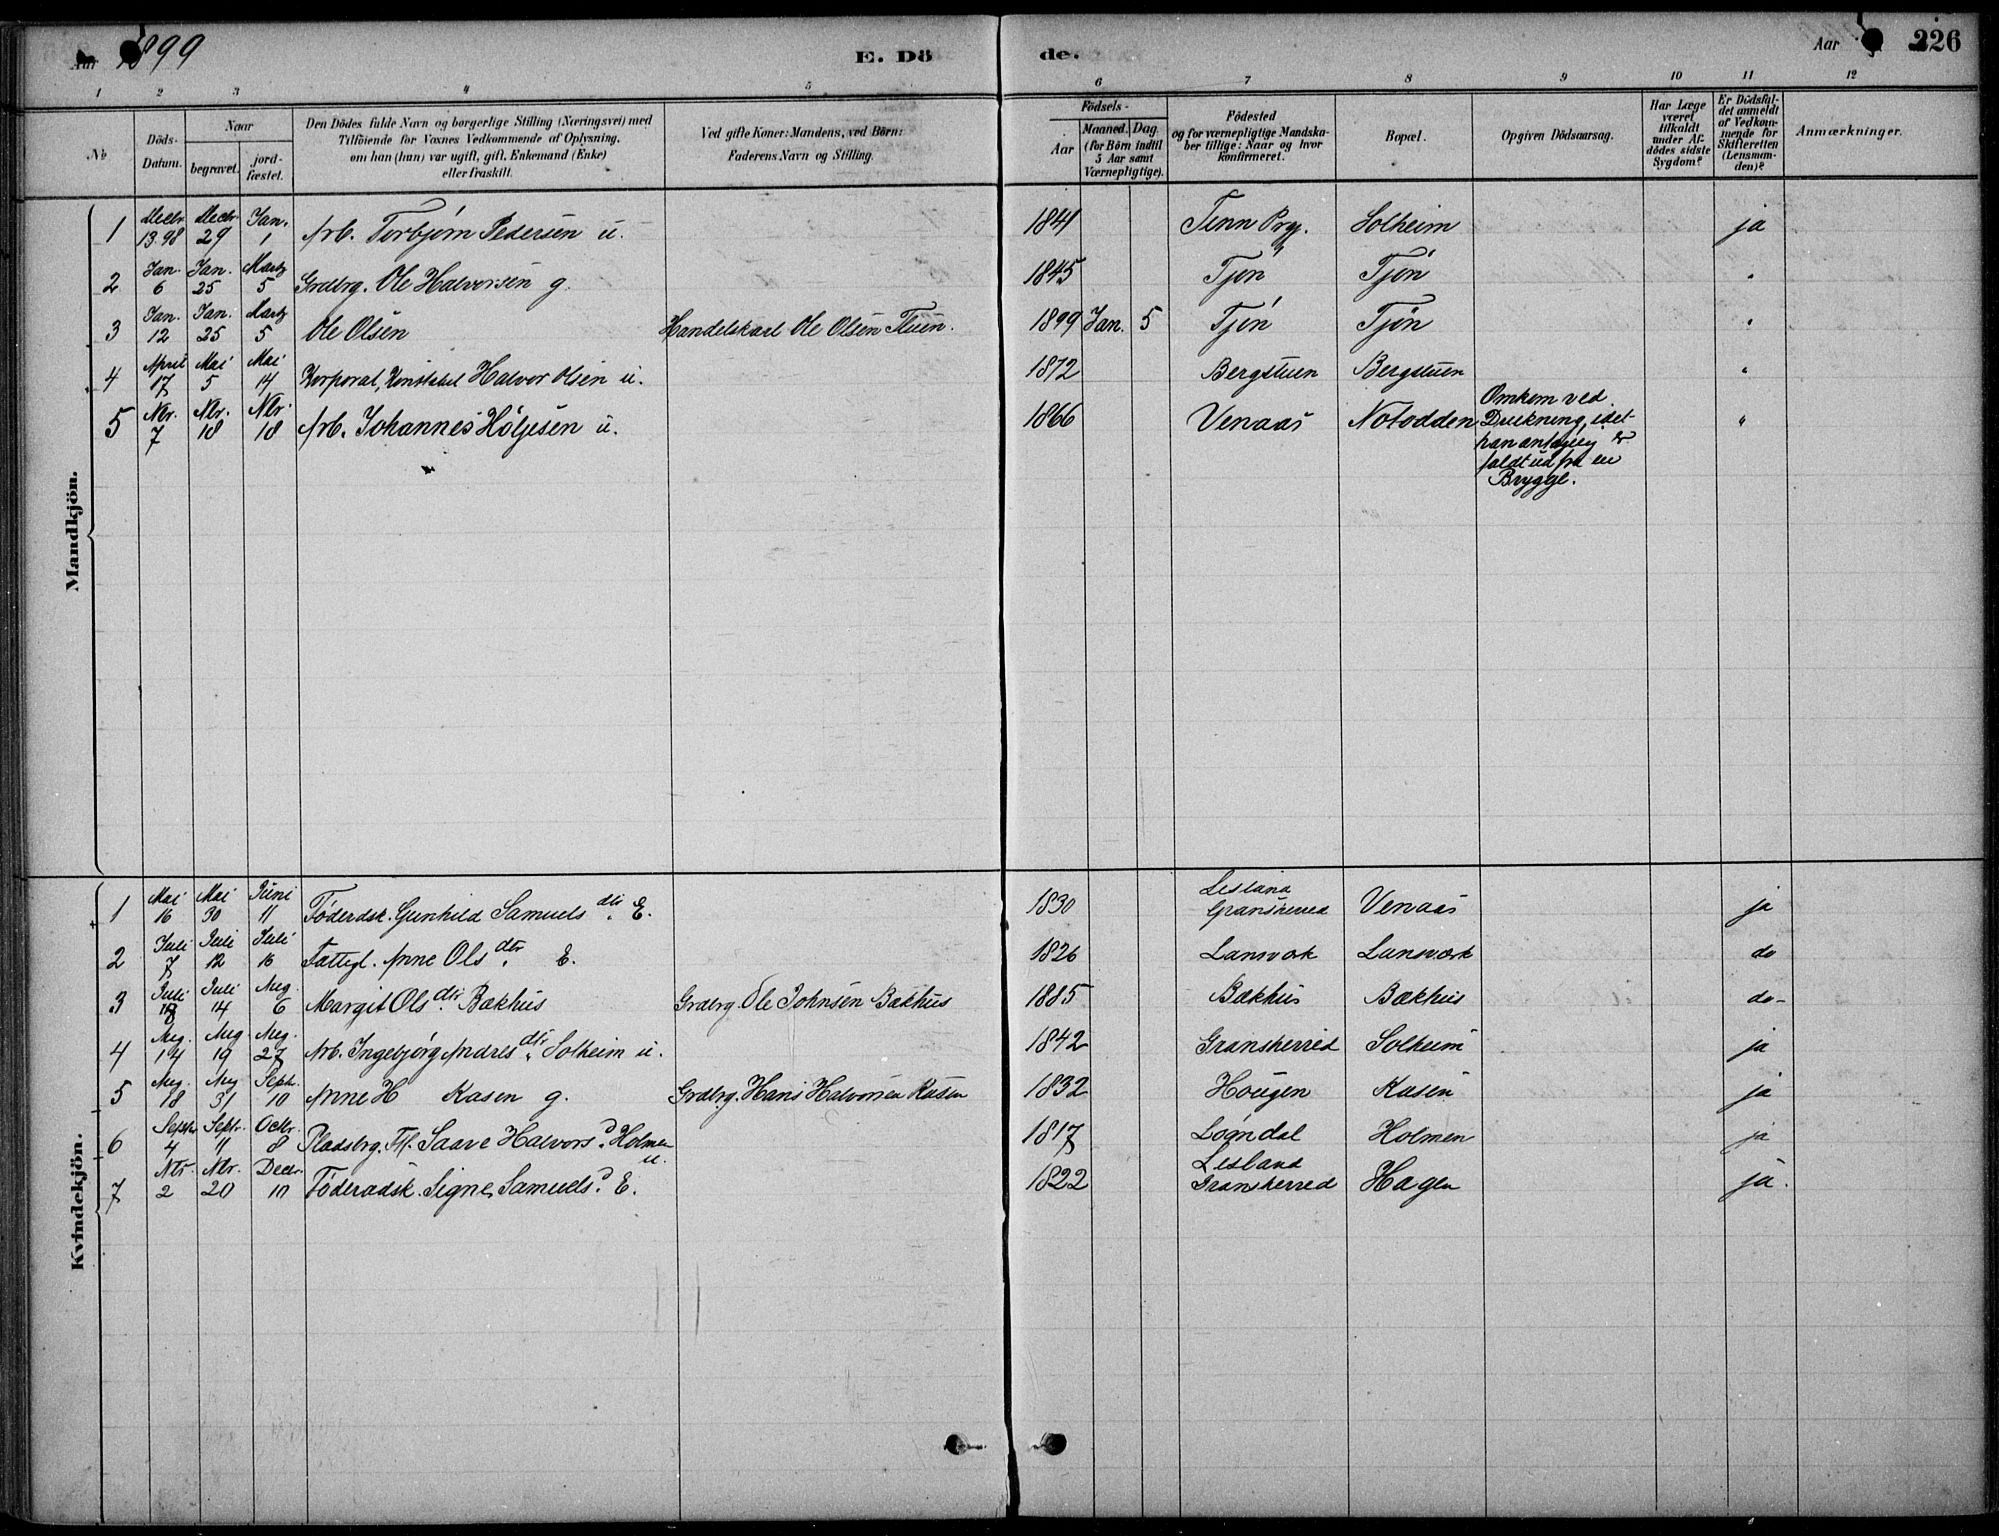 Aar 1899 E. Dö de. Aar 226
1 2 3 4 5 6 7 8 9 10 11 12
No
Döds-Datum.
Naar
begravet.
jord-fæstet.
Den Dödes fulde Navn og borgerlige Stilling (Næringsvei) med
Tilföiende for Voxnes Vedkommende af Oplysning,
om han (hun) var ugift, gift, Enkemand (Enke)
eller fraskilt.
Ved gifte Koner: Mandens, ved Börn:
Faderens Navn og Stilling.
Födsels-
Aar
Maaned. Dag.
(for Börn indtil
5 Aar samt
Værnepligtige).
Födested
og for værnepligtige Mandska-
ber tillige: Naar og hvor
konfirmeret.
Bopæl.
Opgiven Dödsaarsag.
Har Læge
været
tilkaldt
under Af-
dödes sidste
Sygdom?
Er Dödsfal-
det anmeldt
af Vedkom-
mende for
Skifteretten
(Lensman-
den)?
Anmærkninger.
Mandkjön.
1 Decbr. 13.98 Decbr. 29 Jan. 1 Arb. Torbjørn Pedersen u. 1841 Tinn Prgj. Solheim ja
2 Jan. 6 Jan. 25 Marts 5 Grdbrg. Ole Halvorsen g. 1845 Tjön Tjön "
3 Jan. 12 Jan. 25 Marts 5 Ole Olsen Handelskarl Ole Olsen 1899 Jan. 5 Tjön Tjön "
4 April 17 Mai 5 Mai 14 Korporal, Konstabel Halvor Olsen u. 1872 Bergstuen Bergstuen "
5 Nbr. 7 Nbr. 18 Nbr. 18 Arb. Johannes Höljesen u. 1866 Venaas Notodden Omkom ved
Drukning, idet
han antagelig er
faldt ud fra en
Brygge. "
Kvindekjön.
1 Mai 16 Mai 30 Juni 11 Föderdsk. Gunhild Samuelsdtr. E. 1830 Lisland
Gransherred Venaas ja
2 Juli 7 Juli 12 Juli 16 Fattigl. Anne Olsdtr. E. 1826 Lansvæk Lunsværk do
3 Juli Juli 14 Aug. 6 Margit Olsdtr. Bækhus Grdbrg. Ole Johnsen Bækhus 1885 Bækhus Bækhus do-
4 Aug. 14 Aug. 19 Aug. 27 Arb. Ingebjørg Andresdtr. Solheim u. 1842 Gransherred Solheim ja
5 Aug. 18 Aug 31 Septr. 10 Anne H Kasen g. Grdbrg. Hans Halvorsen Kasen 1832 Hougen Kasen ja
6 Septr. 4 Septr. 11 Octr. 8 Pladsbrg. Saave Halvorsd. Holmen u. 1817 Løndal Holmen ja
7 Nbr. 2 Nbr. 20 Decbr. 10 Föderadsk. Signe Samuelsd. E. 1822 Lisland
Gransherred Hagen ja.